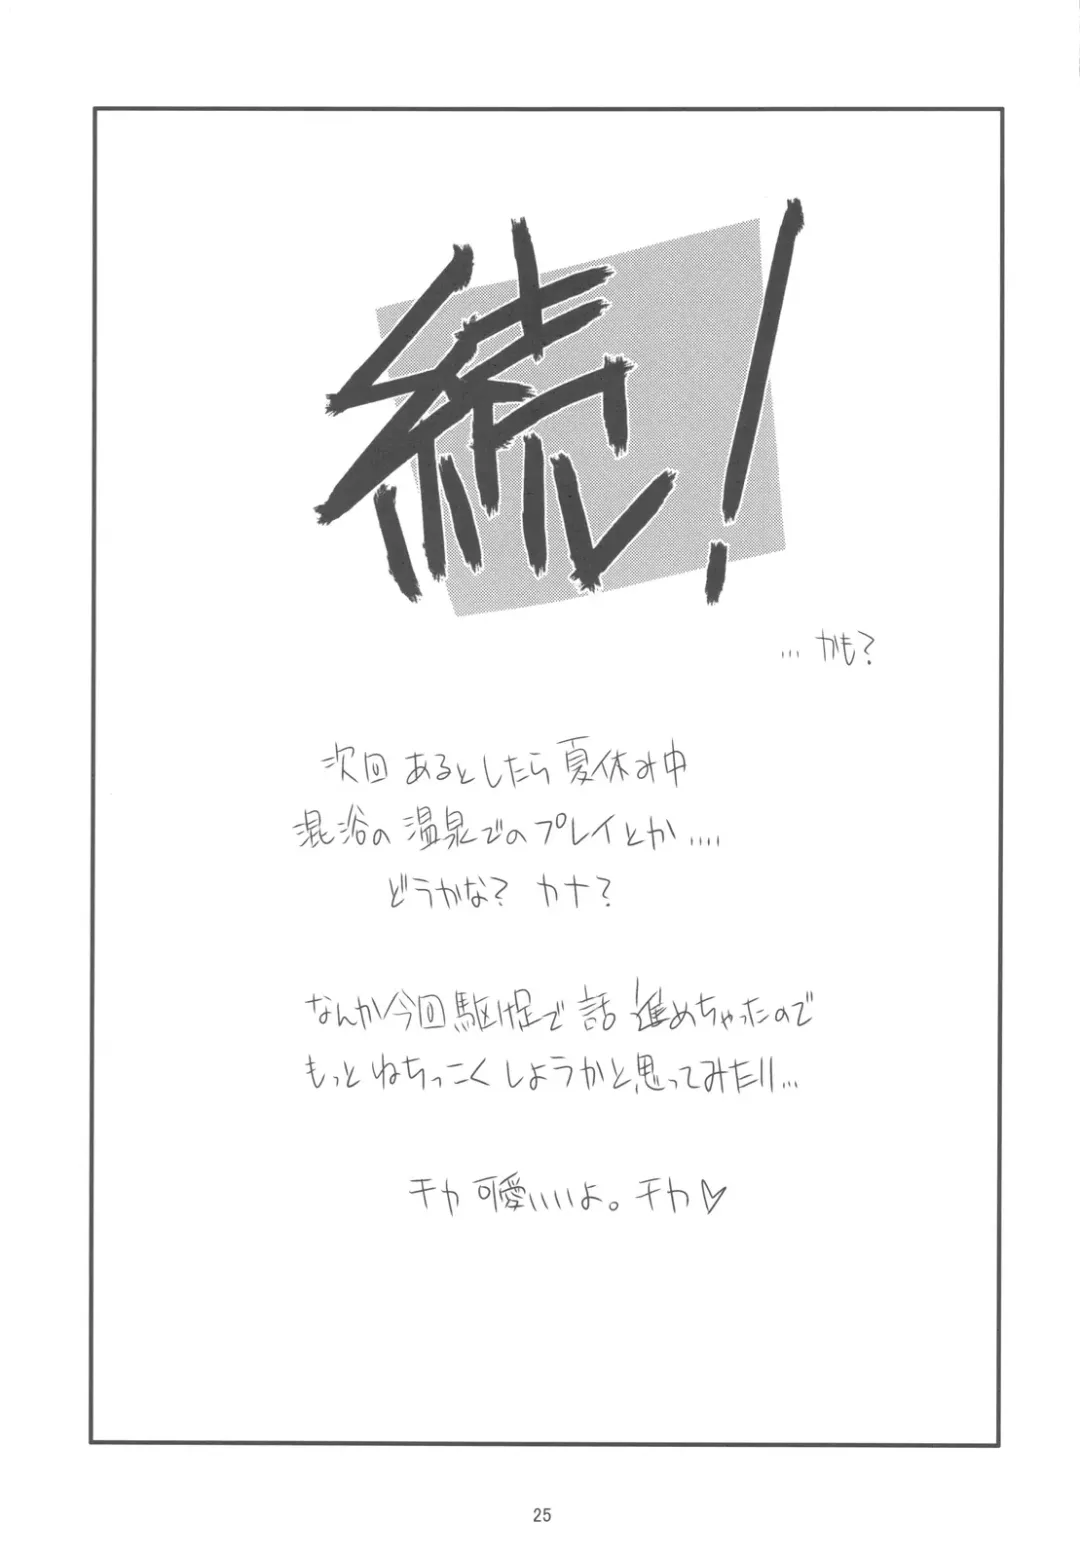 続!
… かも?
次回 あるとしたら 夏休み中
混浴の 温泉でのプレイとか....
どうかな? カナ?
なんか今回 駆け足で 話 進めちゃったので
もっと ねちっこく しようかと 思ってみたり...
チカ 可愛いいよ。チカ♡
25